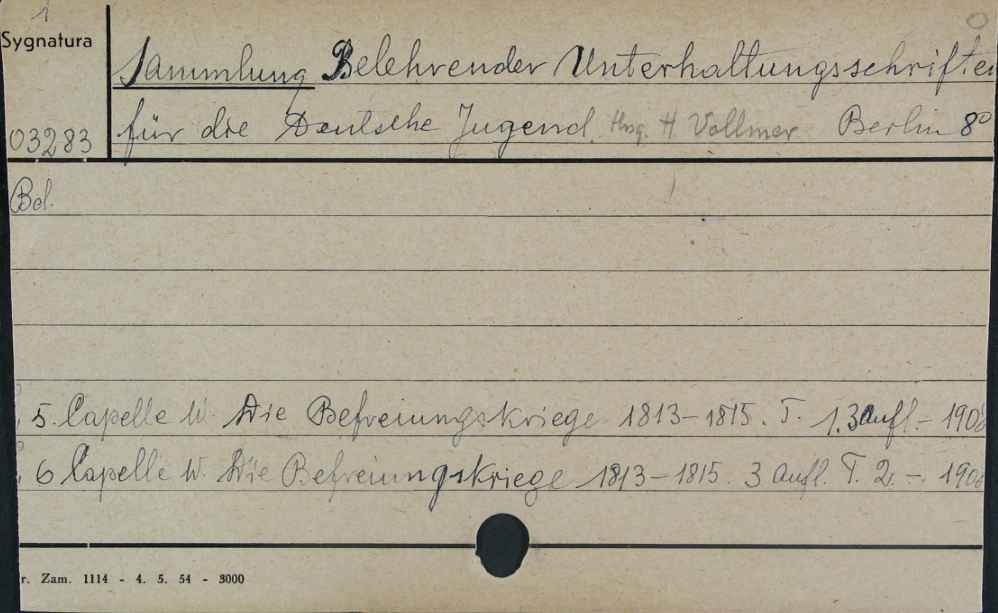 1
Sygnatura
Sammlung Belehrender Unterhaltungsschriften
für die Deutsche Jugend. Hrsg. H. Vollmer Berlin 8°
03283
Bd.
5. Capelle W. Die Befreiungskriege 1813-1815. T. 1. 3 Aufl. - 190
6 Capelle W. Die Befreiungskriege 1813-1815. 3 Aufl. T. 2. - 190
r. Zam. 1114 - 4. 5. 54 - 3000